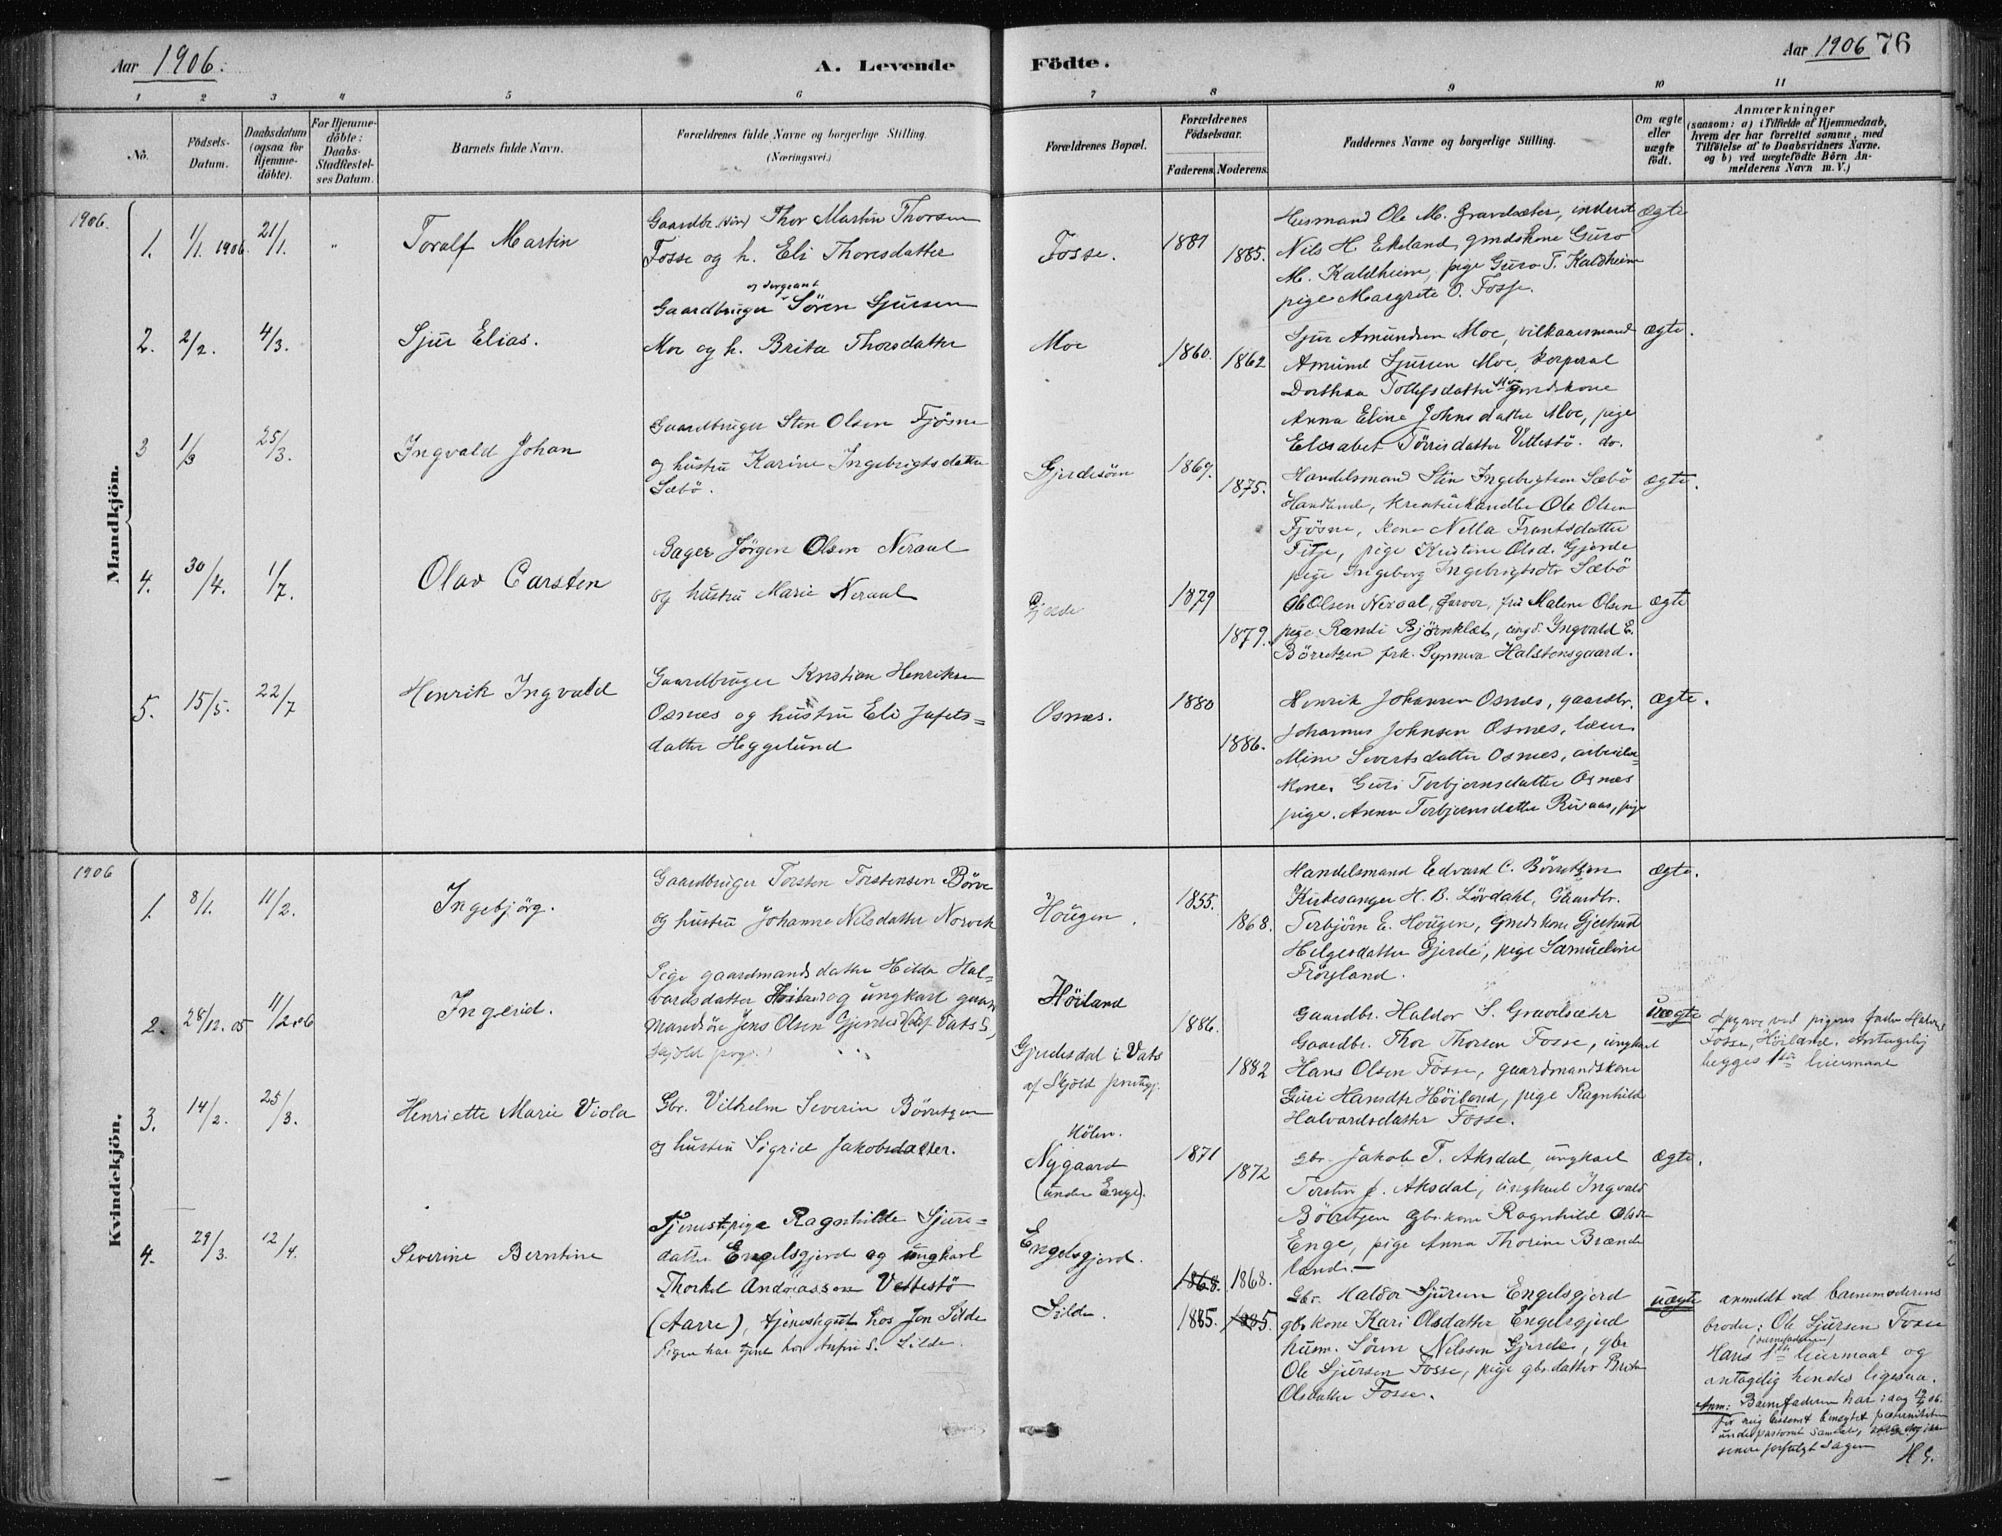 Aar 1906.
A. Levende
Födte.
Aar 1906 76
1 2 3 4 5 6 7 8 9 10 11
No.
Födsels-
Datum.
Daabsdatum
(ogsaa for
Hjemme-
döbte).
For Hjemme-
döbte:
Daabs-
Stadfæstel-
ses Datum.
Barnets fulde Navn.
Forældrenes fulde Navne og borgerlige Stilling.
(Næringsvei.)
Forældrenes Bopæl.
Forældrenes
Födselsaar.
Faderens. Moderens.
Faddernes Navne og borgerlige Stilling.
Om ægte
eller
uægte
födt.
Anmærkninger
(saasom: a) i Tilfælde af Hjemmedaab,
hvem der har forrettet samme, med
Tilföielse af to Daabsvidners Navne.
og b) ved uægtefödte Börn An-
melderens Navn m. V.)
Mandkjön.
1906.
1. 1/1 1906 21/1. "
Toralf Martin
Gaardbr. Thor Martin Thorsen
Fosse og h. Eli Thoresdatter
Fosse.
1881 1885.
Ole M. Gravelsæter, inderst
Nils H. Ekeland, gmdskone Guro
M. Kaldheim, pige Guro T. Kaldheim
pige Margrete O. Fosse.
ægte
2. 2/2. 4/3.
Sjur Elias.
og Sergeant
Gaardbruger Sören Sjursen
Moe og h. Brita Thorsdatter
Moe
1860. 1862
Sjur Amundsen Moe, vilkaarsmand
Amund Sjursen Moe, korporal
Dorthea Tollefsdatter Moe gmdskone
Anna Eline Johnsdatter Moe, pige
Elisabet Törrisdatter Vettestö. do.
ægte.
3 1/3 25/3.
Ingvald Johan
Gaardbruger Sten Olsen Fjösne
og hustru Karine Ingebrigtsdatter
Sæbö.
Gjerdesöen
1869. 1875.
Handelsmand Sten Ingebrigtsen Sæbö
Ole Olsen
Fjösne, kone Nella Frantsdatter
Fitje, pige Kristine Olsd. Gjerde
pige Ingeborg Ingebrigtsdtr Sæbö
ægte.
4. 30/4. 1/7.
Olav Carsten
Bager Jörgen Olsen Neraal
og hustru Marie Neraal
Gjerde
1879 1879.
Ole Olsen Neraal, farver, fru Malene Olsen
pige Randi Björnklæt, ungd. Ingvald E.
Börretzen frk. Synneva Halstensgaard.
ægte
5. 15/5. 22/7
Henrik Ingvald
Gaardbruger Kristian Henriksen
Osnes og hustru Eli Jafets-
datter Heggelund
Osnes.
1880 1886.
Henrik Johansen Osnes, gaardbr.
Johannes Johnsen Osnes, lærer
Mine Sivertsdatter Osnes, arbeider-
kone. Guri Torbjörnsdatter Osnes
pige. Anna Torbjörnsdatter, pige
ægte.
Kvindekjön.
1906
1. 8/1. 11/2.
Ingebjörg.
Gaardbruger Torsten Torstensen Börve
og hustru Johanne Nilsdatter Norvik
Hougen.
1855. 1868.
Handelsmand Edvard C. Börretzen
Kirkesanger H. B. Lövdahl, Gaardbr.
Torbjörn E. Hougen, gmdskone Gjertrud
Helgesdatter Gjerde, pige Samueline
Fröyland.
ægte.
2. 28/12. 05 11/2. 06
Ingerid.
Pige gaardmandsdatter Hilda Hal-
vardsdatter Höiland og ungkarl gaard-
mandsön Jens Olsen Gjerdesdal Vats S.,
Skjold prgj.
Höiland
Gjerdesdal i Vats
af Skjold prestgj.
1886. 1882
Gaardbr. Haldor S. Gravelsæter
Gaardbr. Thor Thorsen Fosse, ungkarl
Hans Olsen Fosse, gaardmandskone
Guri Hansdtr Höiland, pige Ragnhild
Halvardsdatter Fosse.
uægte
Opgave ved pigens fader Halvor
Fosse, Höiland. Antagelig
begges 1ste leiermaal
3. 14/2. 25/3.
Henriette Marie Viola
Gbr. Vilhelm Severin Börretzen
og hustru Sigrid Jakobsdatter.
Hölen.
Nygaard
(under Enge).
1871 1872
Gbr. Jakob T. Aksdal, ungkarl
Torsten J. Aksdal, ungkarl Ingvald
Börretzen gbr.kone Ragnhild Olsdtr
Enge, pige Anna Thorine Brænde-
land.—
ægte.
4. 29/3. 12/4.
Severine Berntine
Tjenestpige Ragnhilde Sjurs-
datter Engelsgjerd og ungkarl
Thorkel Andreassen Vettestö
(Aarre), tjenestegut hos Jon Silde
Pigen har tjent hos S. Silde.
Engelsgjerd.
Silde.
1868. 1868.
1885. 1885.
Gbr. Haldor Sjursen Engelsgjerd
gbr kone Kari Olsdatter Engelsgjerd
husm. Sören Nilssen Gjerde, gbr
Ole Sjursen Fosse, pige gbrdatter Brita
Olsdatter Fosse.
uægte
anmeldt ved barnemoderens
broder: Ole Sjursen Fosse
(barnefaderen)
Hans 1ste leiermaal og
antagelig hendes ligesaa.
Anm: Barnefaderen har i dag
for mig bestemt benegtet paterniteten
under pastoral samtale,
senere forfulgt sagen
H G.